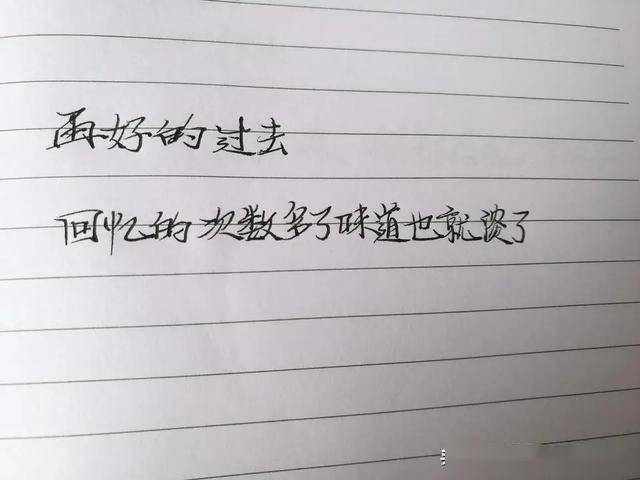 再好的过去
回忆的次数多了味道也就淡了